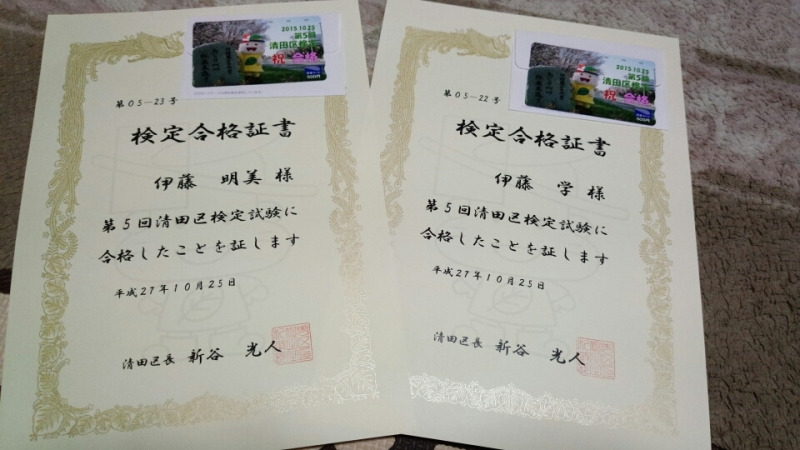 2015 10 25
第5回
清田区検定
祝 合格
500円
第05-23号
検定合格証書
伊藤 明美 様
第5回清田区検定試験に
合格したことを証します
平成27年10月25日
清田区長 新谷 光人
2015 10 25
第5回
清田区検定
祝 合格
500円
第05-22号
検定合格証書
伊藤 学 様
第5回清田区検定試験に
合格したことを証します
平成27年10月25日
清田区長 新谷 光人